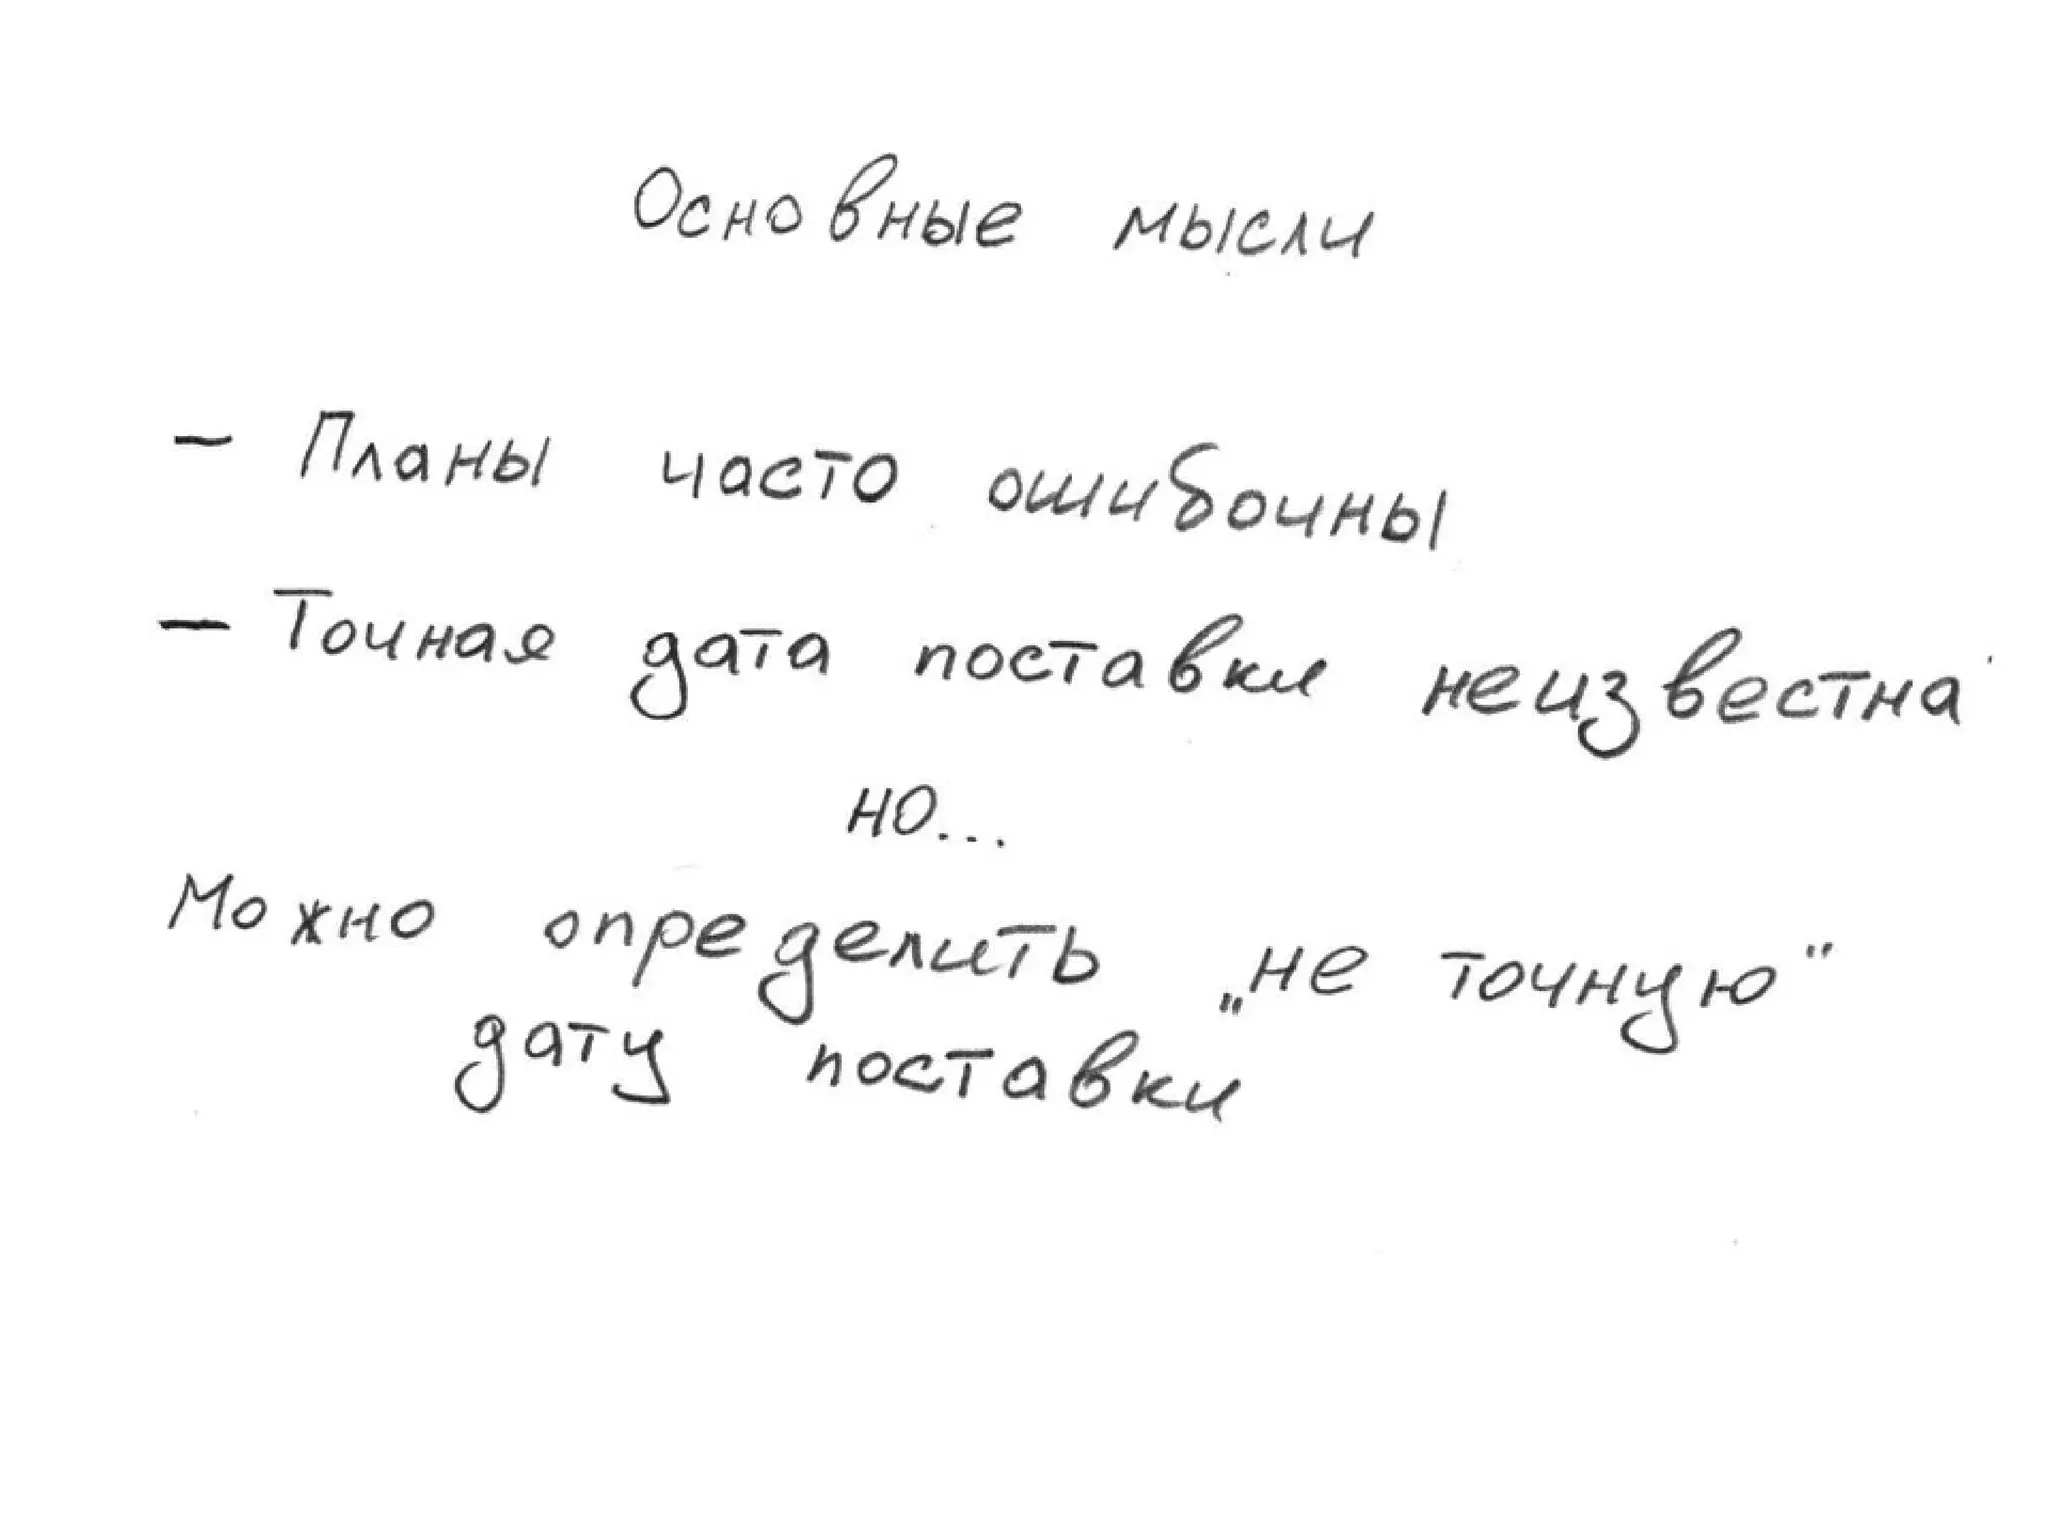 Основные мысли
- Планы часто ошибочны
- Точная дата поставки неизвестна
но...
Можно определить „не точную"
дату поставки